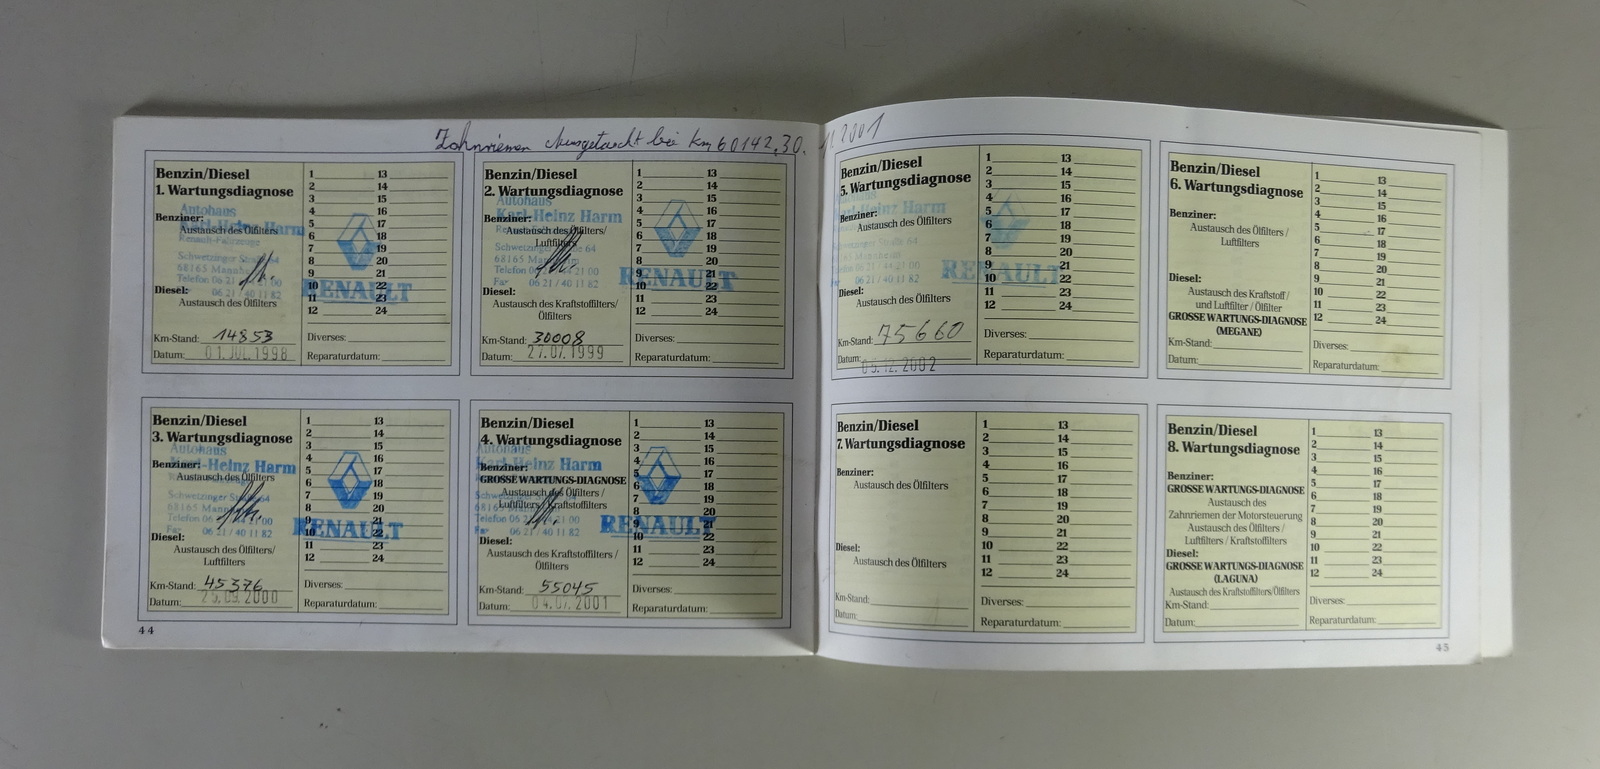 Zahnriemen Ausgetauscht bei Km 60142, 30. 11.2001
Benzin/Diesel
1. Wartungsdiagnose
Autohaus
Karl-Heinz Harm
Benziner:
Austausch des Ölfilters
Schwetzinger Straße 64
68165 Mannheim
Telefon 06 21 / 44 21 00
06 21 / 40 11 82
Diesel:
Austausch des Ölfilters
Km-Stand: 14853
Datum: 01. JUL. 1998
1 13
2 14
3 15
4 16
5 17
6 18
7 19
8 20
9 21
10 22
11 23
12 24
RENAULT
Diverses:
Reparaturdatum:
Benzin/Diesel
2. Wartungsdiagnose
Autohaus
Karl-Heinz Harm
Benziner:
Austausch des Ölfilters/
Luftfilters
Schwetzinger Straße 64
68165 Mannheim
Telefon 06 21 / 44 21 00
Fax 06 21 / 40 11 82
Diesel:
Austausch des Kraftstoffilters/
Ölfilters
Km-Stand: 30008
Datum: 27.07.1999
1 13
2 14
3 15
4 16
5 17
6 18
7 19
8 20
9 21
10 22
11 23
12 24
RENAULT
Diverses:
Reparaturdatum:
Benzin/Diesel
3. Wartungsdiagnose
Autohaus
Karl-Heinz Harm
Benziner:
Austausch des Ölfilters
Schwetzinger Straße 64
68165 Mannheim
Telefon 06 21 / 44 21 00
Fax 06 21 / 40 11 82
Diesel:
Austausch des Ölfilters/
Luftfilters
Km-Stand: 45376
Datum: 25.09.2000
1 13
2 14
3 15
4 16
5 17
6 18
7 19
8 20
9 21
10 22
11 23
12 24
RENAULT
Diverses:
Reparaturdatum:
Benzin/Diesel
4. Wartungsdiagnose
Autohaus
Karl-Heinz Harm
Benziner:
GROSSE WARTUNGS-DIAGNOSE
Austausch des Ölfilters /
Luftfilters / Kraftstoffilters
Schwetzinger Straße 64
68165 Mannheim
Telefon 06 21 / 44 21 00
Fax 06 21 / 40 11 82
Diesel:
Austausch des Kraftstoffilters /
Ölfilters
Km-Stand: 55045
Datum: 04.07.2001
1 13
2 14
3 15
4 16
5 17
6 18
7 19
8 20
9 21
10 22
11 23
12 24
RENAULT
Diverses:
Reparaturdatum:
44
Benzin/Diesel
5. Wartungsdiagnose
Karl-Heinz Harm
Benziner:
Austausch des Ölfilters
Schwetzinger Straße 64
68165 Mannheim
Telefon 06 21 / 44 21 00
06 21 / 40 11 82
Diesel:
Austausch des Ölfilters
Km-Stand: 75660
Datum: 05.12.2002
1 13
2 14
3 15
4 16
5 17
6 18
7 19
8 20
9 21
10 22
11 23
12 24
RENAULT
Diverses:
Reparaturdatum:
Benzin/Diesel
6. Wartungsdiagnose
Benziner:
Austausch des Ölfilters /
Luftfilters
Diesel:
Austausch des Kraftstoff /
und Luftfilter / Ölfilter
GROSSE WARTUNGS-DIAGNOSE
(MEGANE)
Km-Stand:
Datum:
1 13
2 14
3 15
4 16
5 17
6 18
7 19
8 20
9 21
10 22
11 23
12 24
Diverses:
Reparaturdatum:
Benzin/Diesel
7. Wartungsdiagnose
Benziner:
Austausch des Ölfilters
Diesel:
Austausch des Ölfilters
Km-Stand:
Datum:
1 13
2 14
3 15
4 16
5 17
6 18
7 19
8 20
9 21
10 22
11 23
12 24
Diverses:
Reparaturdatum:
Benzin/Diesel
8. Wartungsdiagnose
Benziner:
GROSSE WARTUNGS-DIAGNOSE
Austausch des
Zahnriemen der Motorsteuerung
Austausch des Ölfilters /
Luftfilters / Kraftstoffilters
Diesel:
GROSSE WARTUNGS-DIAGNOSE
(LAGUNA)
Austausch des Kraftstoffilters/Ölfilters
Km-Stand:
Datum:
1 13
2 14
3 15
4 16
5 17
6 18
7 19
8 20
9 21
10 22
11 23
12 24
Diverses:
Reparaturdatum:
45